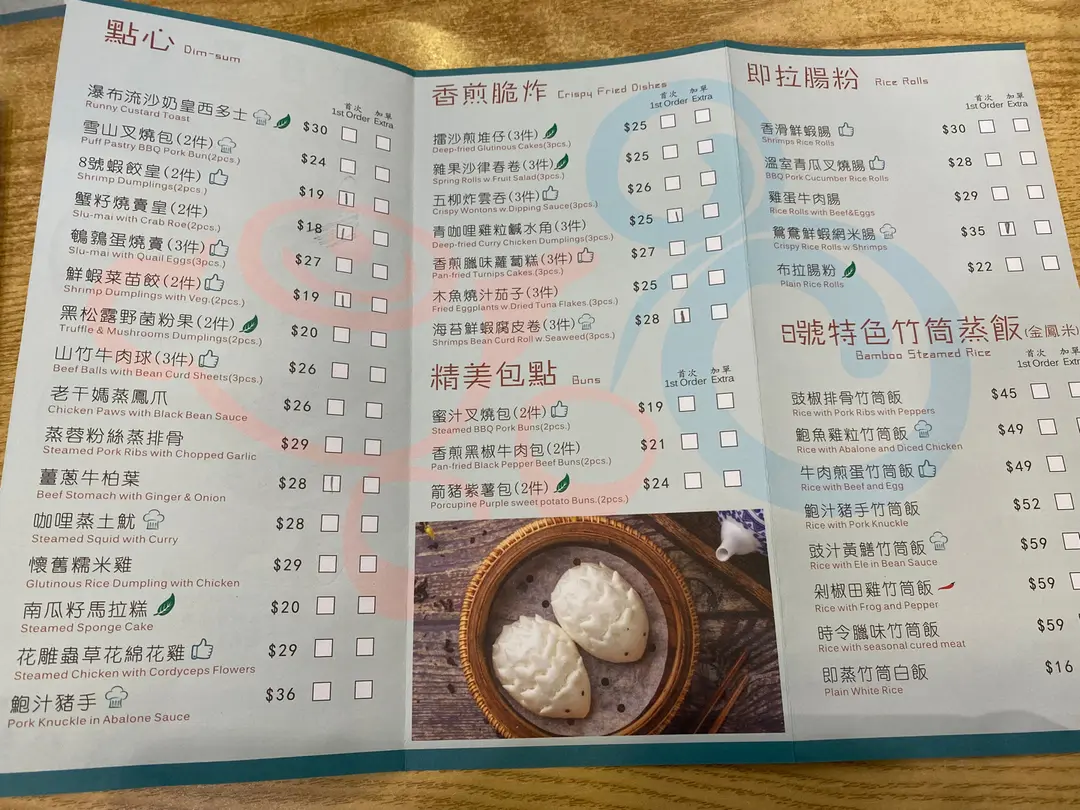 點心 Dim-sum
首次 加單
1st Order Extra
瀑布流沙奶皇西多士 $30
Runny Custard Toast
雪山叉燒包(2件) $24
Puff Pastry BBQ Pork Bun(2pcs.)
8號蝦餃皇(2件) $19
Shrimp Dumplings(2pcs.)
蟹籽燒賣皇(2件) $18
Slu-mai with Crab Roe(2pcs.)
鵪鶉蛋燒賣(3件) $27
Slu-mai with Quail Eggs(3pcs.)
鮮蝦菜苗餃(2件) $19
Shrimp Dumplings with Veg.(2pcs.)
黑松露野菌粉果(2件) $20
Truffle & Mushrooms Dumplings(2pcs.)
山竹牛肉球(3件) $26
Beef Balls with Bean Curd Sheets(3pcs.)
老干媽蒸鳳爪 $26
Chicken Paws with Black Bean Sauce
蒸蓉粉絲蒸排骨 $29
Steamed Pork Ribs with Chopped Garlic
薑蔥牛柏葉 $28
Beef Stomach with Ginger & Onion
咖哩蒸土魷 $28
Steamed Squid with Curry
懷舊糯米雞 $29
Glutinous Rice Dumpling with Chicken
南瓜籽馬拉糕 $20
Steamed Sponge Cake
花雕蟲草花綿花雞 $29
Steamed Chicken with Cordyceps Flowers
鮑汁豬手 $36
Pork Knuckle in Abalone Sauce
香煎脆炸 Crispy Fried Dishes
首次 加單
1st Order Extra
擂沙煎堆仔(3件) $25
Deep-fried Glutinous Cakes(3pcs.)
雜果沙律春卷(3件) $25
Spring Rolls w.Fruit Salad(3pcs.)
五柳炸雲吞(3件) $26
Crispy Wontons w.Dipping Sauce(3pcs.)
青咖哩雞粒鹹水角(3件) $25
Deep-fried Curry Chicken Dumplings(3pcs.)
香煎臘味蘿蔔糕(3件) $27
Pan-fried Turnips Cakes.(3pcs.)
木魚燒汁茄子(3件) $25
Fried Eggplants w.Dried Tuna Flakes.(3pcs.)
海苔鮮蝦腐皮卷(3件) $28
Shrimps Bean Curd Roll w.Seaweed(3pcs.)
精美包點 Buns
首次 加單
1st Order Extra
蜜汁叉燒包(2件) $19
Steamed BBQ Pork Buns(2pcs.)
香煎黑椒牛肉包(2件) $21
Pan-fried Black Pepper Beef Buns(2pcs.)
箭豬紫薯包(2件) $24
Porcupine Purple sweet potato Buns.(2pcs.)
即拉腸粉 Rice Rolls
首次 加單
1st Order Extra
香滑鮮蝦腸 $30
Shrimps Rice Rolls
溫室青瓜叉燒腸 $28
BBQ Pork Cucumber Rice Rolls
雞蛋牛肉腸 $29
Rice Rolls with Beef&Eggs
鴛鴦鮮蝦網米腸 $35
Crispy Rice Rolls w Shrimps
布拉腸粉 $22
Plain Rice Rolls
8號特色竹筒蒸飯(金鳳米)
Bamboo Steamed Rice
首次 加單
1st Order Extra
豉椒排骨竹筒飯 $45
Rice with Pork Ribs with Peppers
鮑魚雞粒竹筒飯 $49
Rice with Abalone and Diced Chicken
牛肉煎蛋竹筒飯 $49
Rice with Beef and Egg
鮑汁豬手竹筒飯 $52
Rice with Pork Knuckle
豉汁黃鱔竹筒飯 $59
Rice with Ele in Bean Sauce
剁椒田雞竹筒飯 $59
Rice with Frog and Pepper
時令臘味竹筒飯 $59
Rice with seasonal cured meat
即蒸竹筒白飯 $16
Plain White Rice